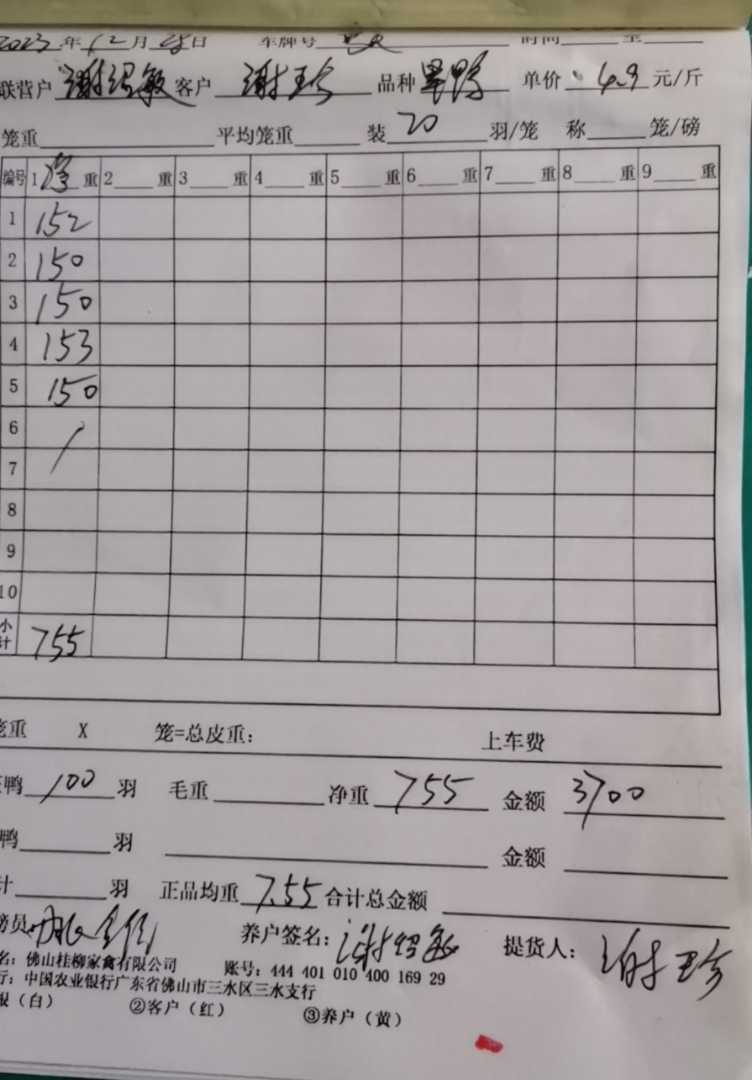 2023年12月28日 车牌号 时间 至
联营户 谢绍敏 客户 谢珍 品种 黑鸭 单价 4.9 元/斤
笼重 平均笼重 装 20 羽/笼 称 笼/磅
编号 1 净重 2 重 3 重 4 重 5 重 6 重 7 重 8 重 9 重
1 152
2 150
3 150
4 153
5 150
6
7
8
9
10
小计 755
笼重 X 笼=总皮重: 上车费
鸭 100 羽 毛重 净重 755 金额 3700
鸭 羽 金额
计 羽 正品均重 7.55 合计总金额
磅员 养户签名: 谢绍敏 提货人: 谢珍
名: 佛山桂柳家禽有限公司 账号: 444 401 010 400 169 29
行: 中国农业银行广东省佛山市三水区三水支行
(白) ②客户(红) ③养户(黄)